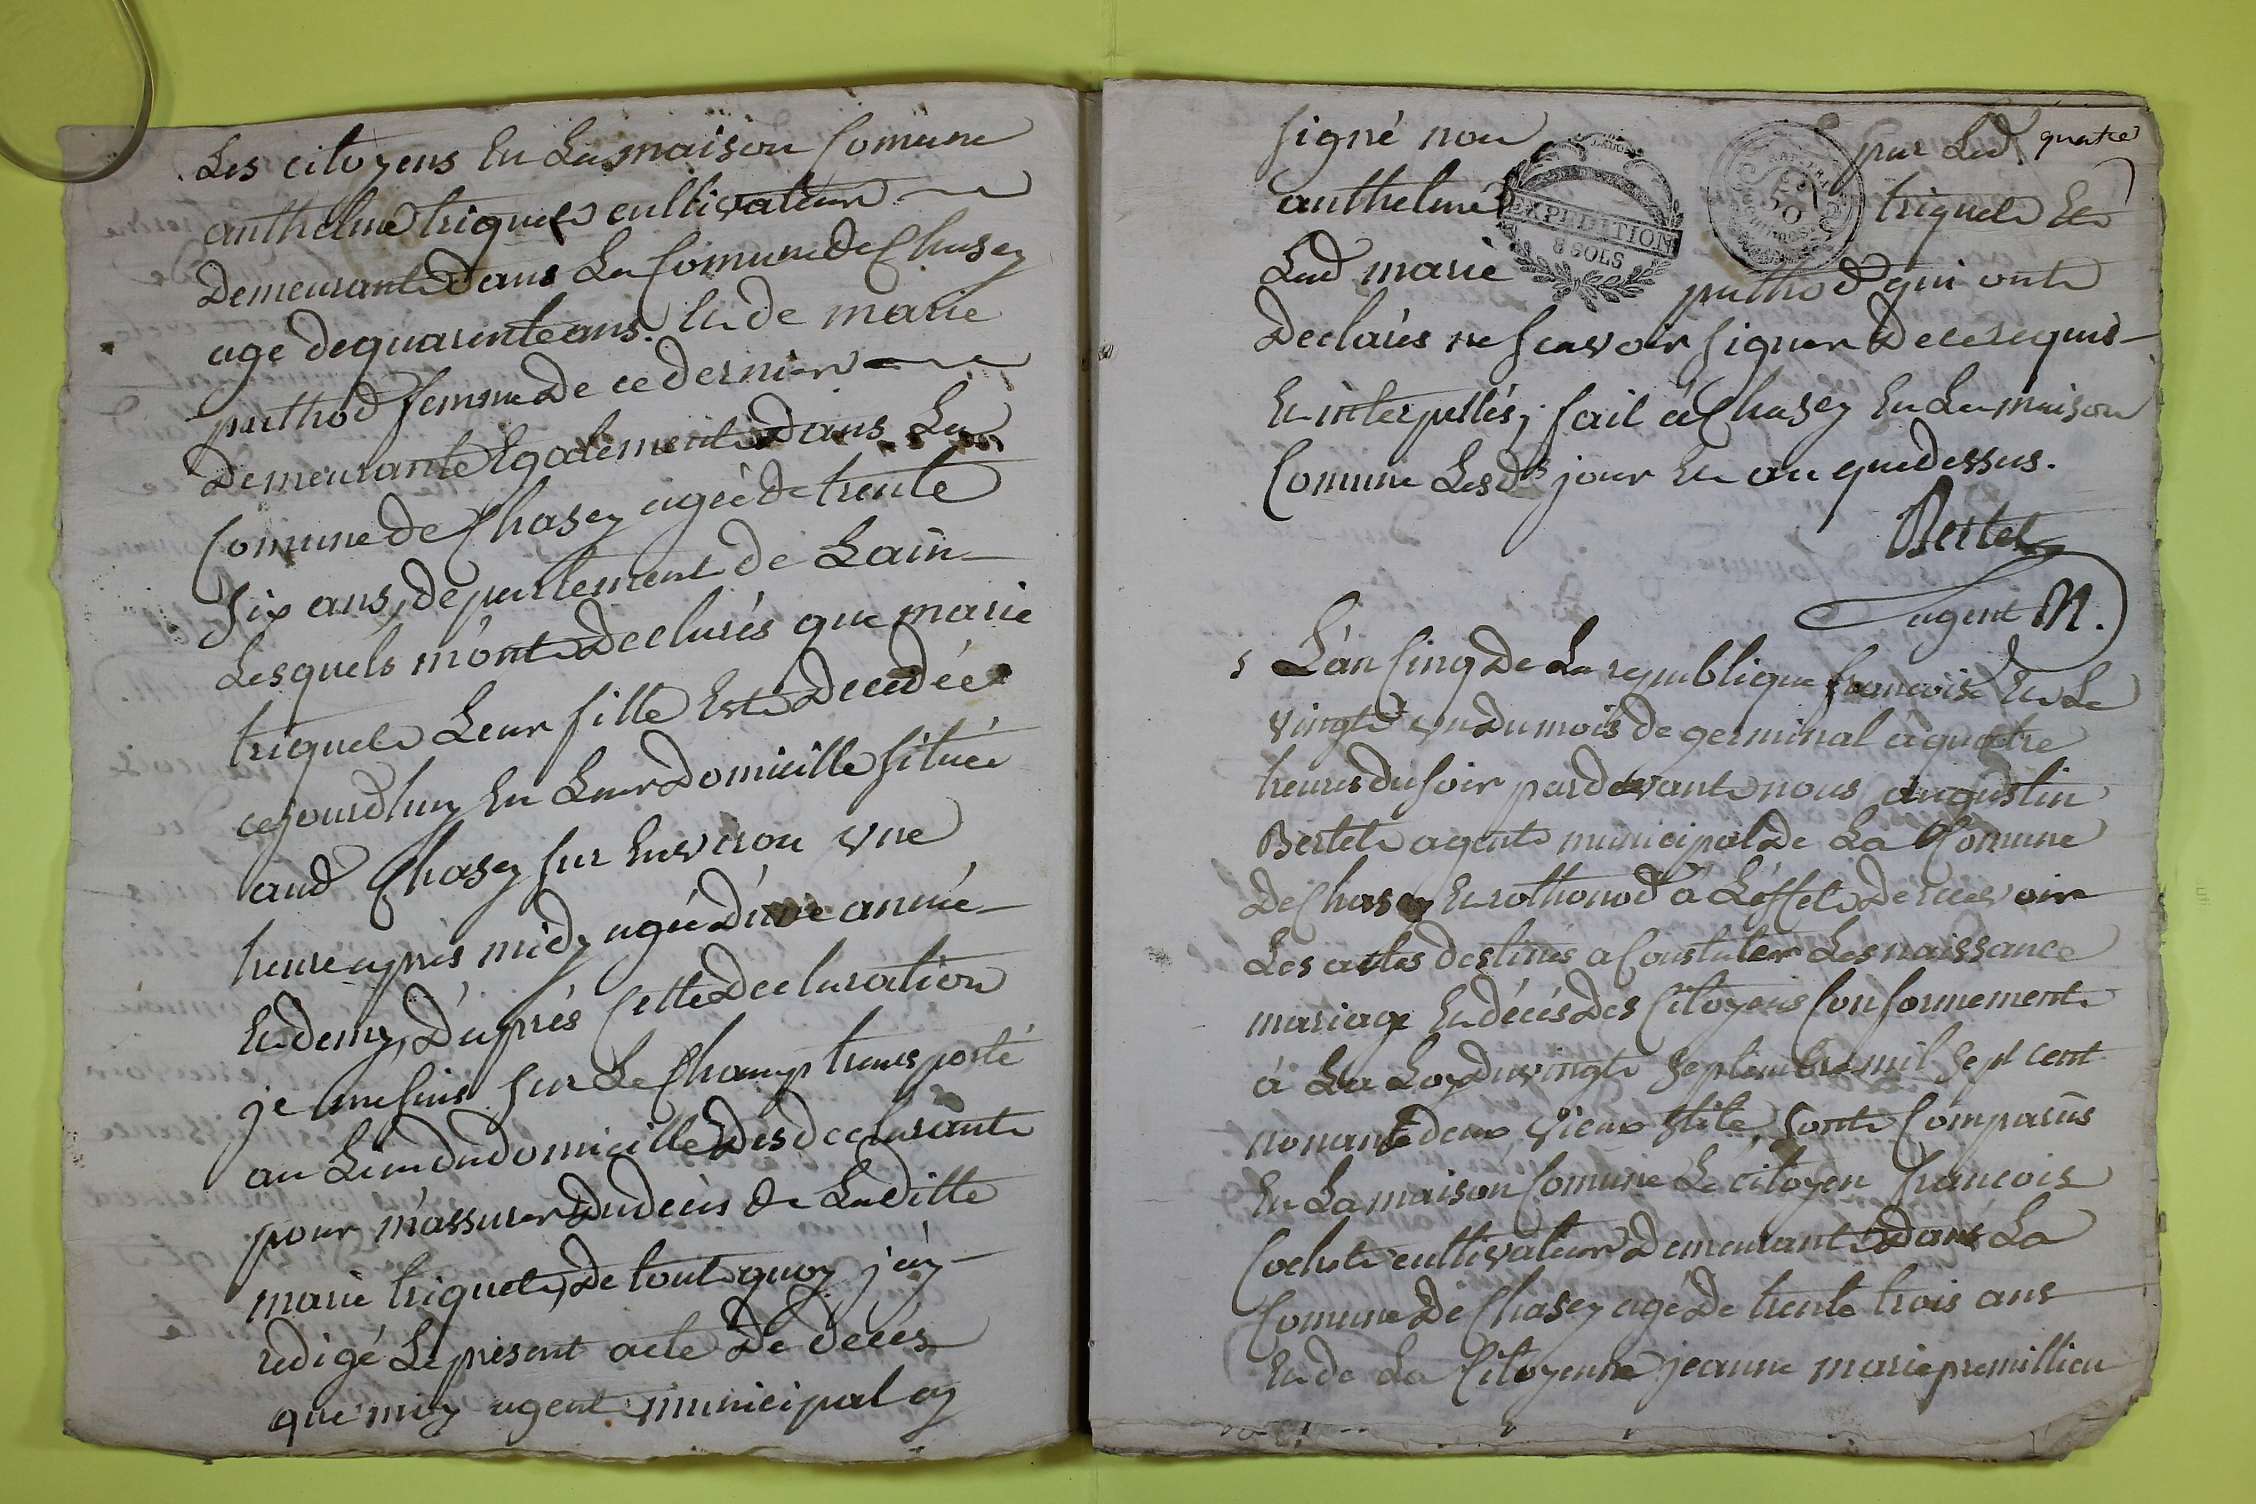 Les citoyens En La maison Comune
anthelme triquet cultivateur
Demeurant Dans La Comune de Chasey
age de quarente ans. Et de marie
puthod femme de ce dernier
Demeurante Egalement Dans La
Comune de Chasey agée de trente
Six ans, département de Lain
Lesquels m'ont Declarés que marie
triquet Leur fille Est Decedée
cejourdhuy En Leur Domicille située
aud Chasey sur Environ une
heure après midy agée d'une année
Et demy, D'après Cette Declaration
je me suis sur Le Champ transporté
au Lieu du domicille Des declarant
pour m'assurer Du décès De Laditte
marie triquet, De tout quoy j'ay
rédigé Le present acte De décès
que moy agent municipal ay
signé non par Led quatre
anthelme triquet Et
Lad marie puthod qui ont
Declarés ne scavoir signer De ce requis
Et interpellés; fait à Chasey En La maison
Comune Lesds jour Et an que dessus.
EXPEDITION
8 SOLS
50
Bertet
agent M.
5 L'an Cinq De La republique francoise Et Le
vingt un du mois de germinal à quatre
heures du soir pardevant nous augustin
Bertet agent municipal De La Comune
De Chasey Et rothonod à L'effet De recevoir
Les actes destinés a Constater Les naissance
mariage Et décés Des Citoyens Conformement
à La Loy du vingt Septembre mil Sept cent
nonante deux vieux stile, Sont Comparus
En La maison Comune Le citoyen francois
Cochet cultivateur Demeurant Dans La
Comune De Chasey agé De trente trois ans
Et de La Citoyenne jeanne marie premillieu